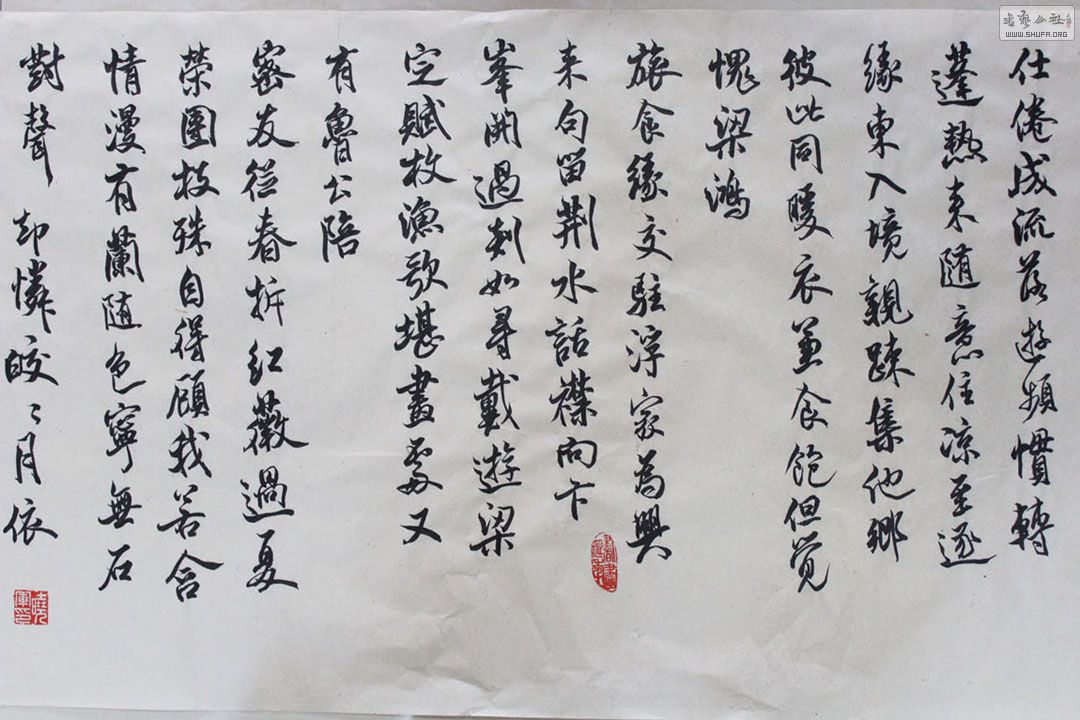 仕倦成流落遊頻慣轉
蓬熱来随意住凉至逐
緣東入境親疎集他鄉
彼此同暖衣兼食飽但覺
愧梁鴻
旅食緣交駐浮家為興
来句留荆水話襟向卞
峯開過剡如尋戴遊梁
定賦枚漁歌堪畫處又
有魯公陪
密友從春拆紅薇過夏
榮團枝殊自得顧我若含
情漫有蘭随色寧無石
對聲 却憐皎〻月依
書藝公社
WWW.SHUFA.ORG